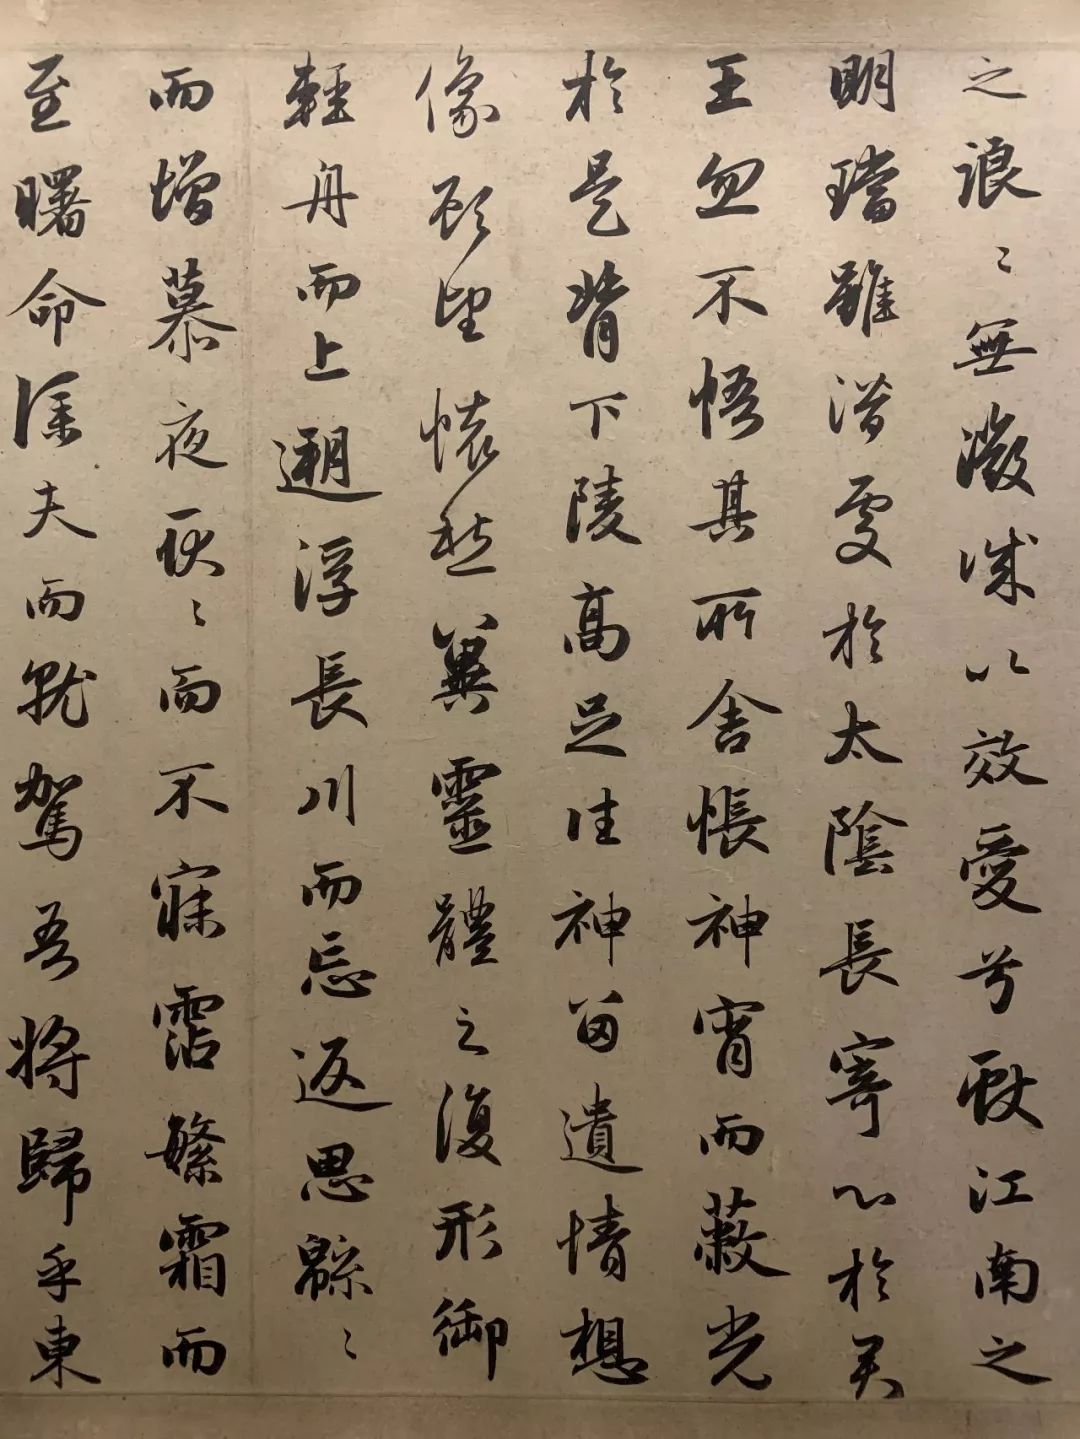 之浪〻無微誠以效愛兮獻江南之
明璫雖潛處於太陰長寄心於君
王忽不悟其所舍悵神宵而蔽光
於是背下陵高足往神留遺情想
像顧望懷愁冀靈體之復形御
輕舟而上遡浮長川而忘返思緜〻
而增慕夜耿〻而不寐霑繁霜而
至曙命僕夫而就駕吾將歸乎東